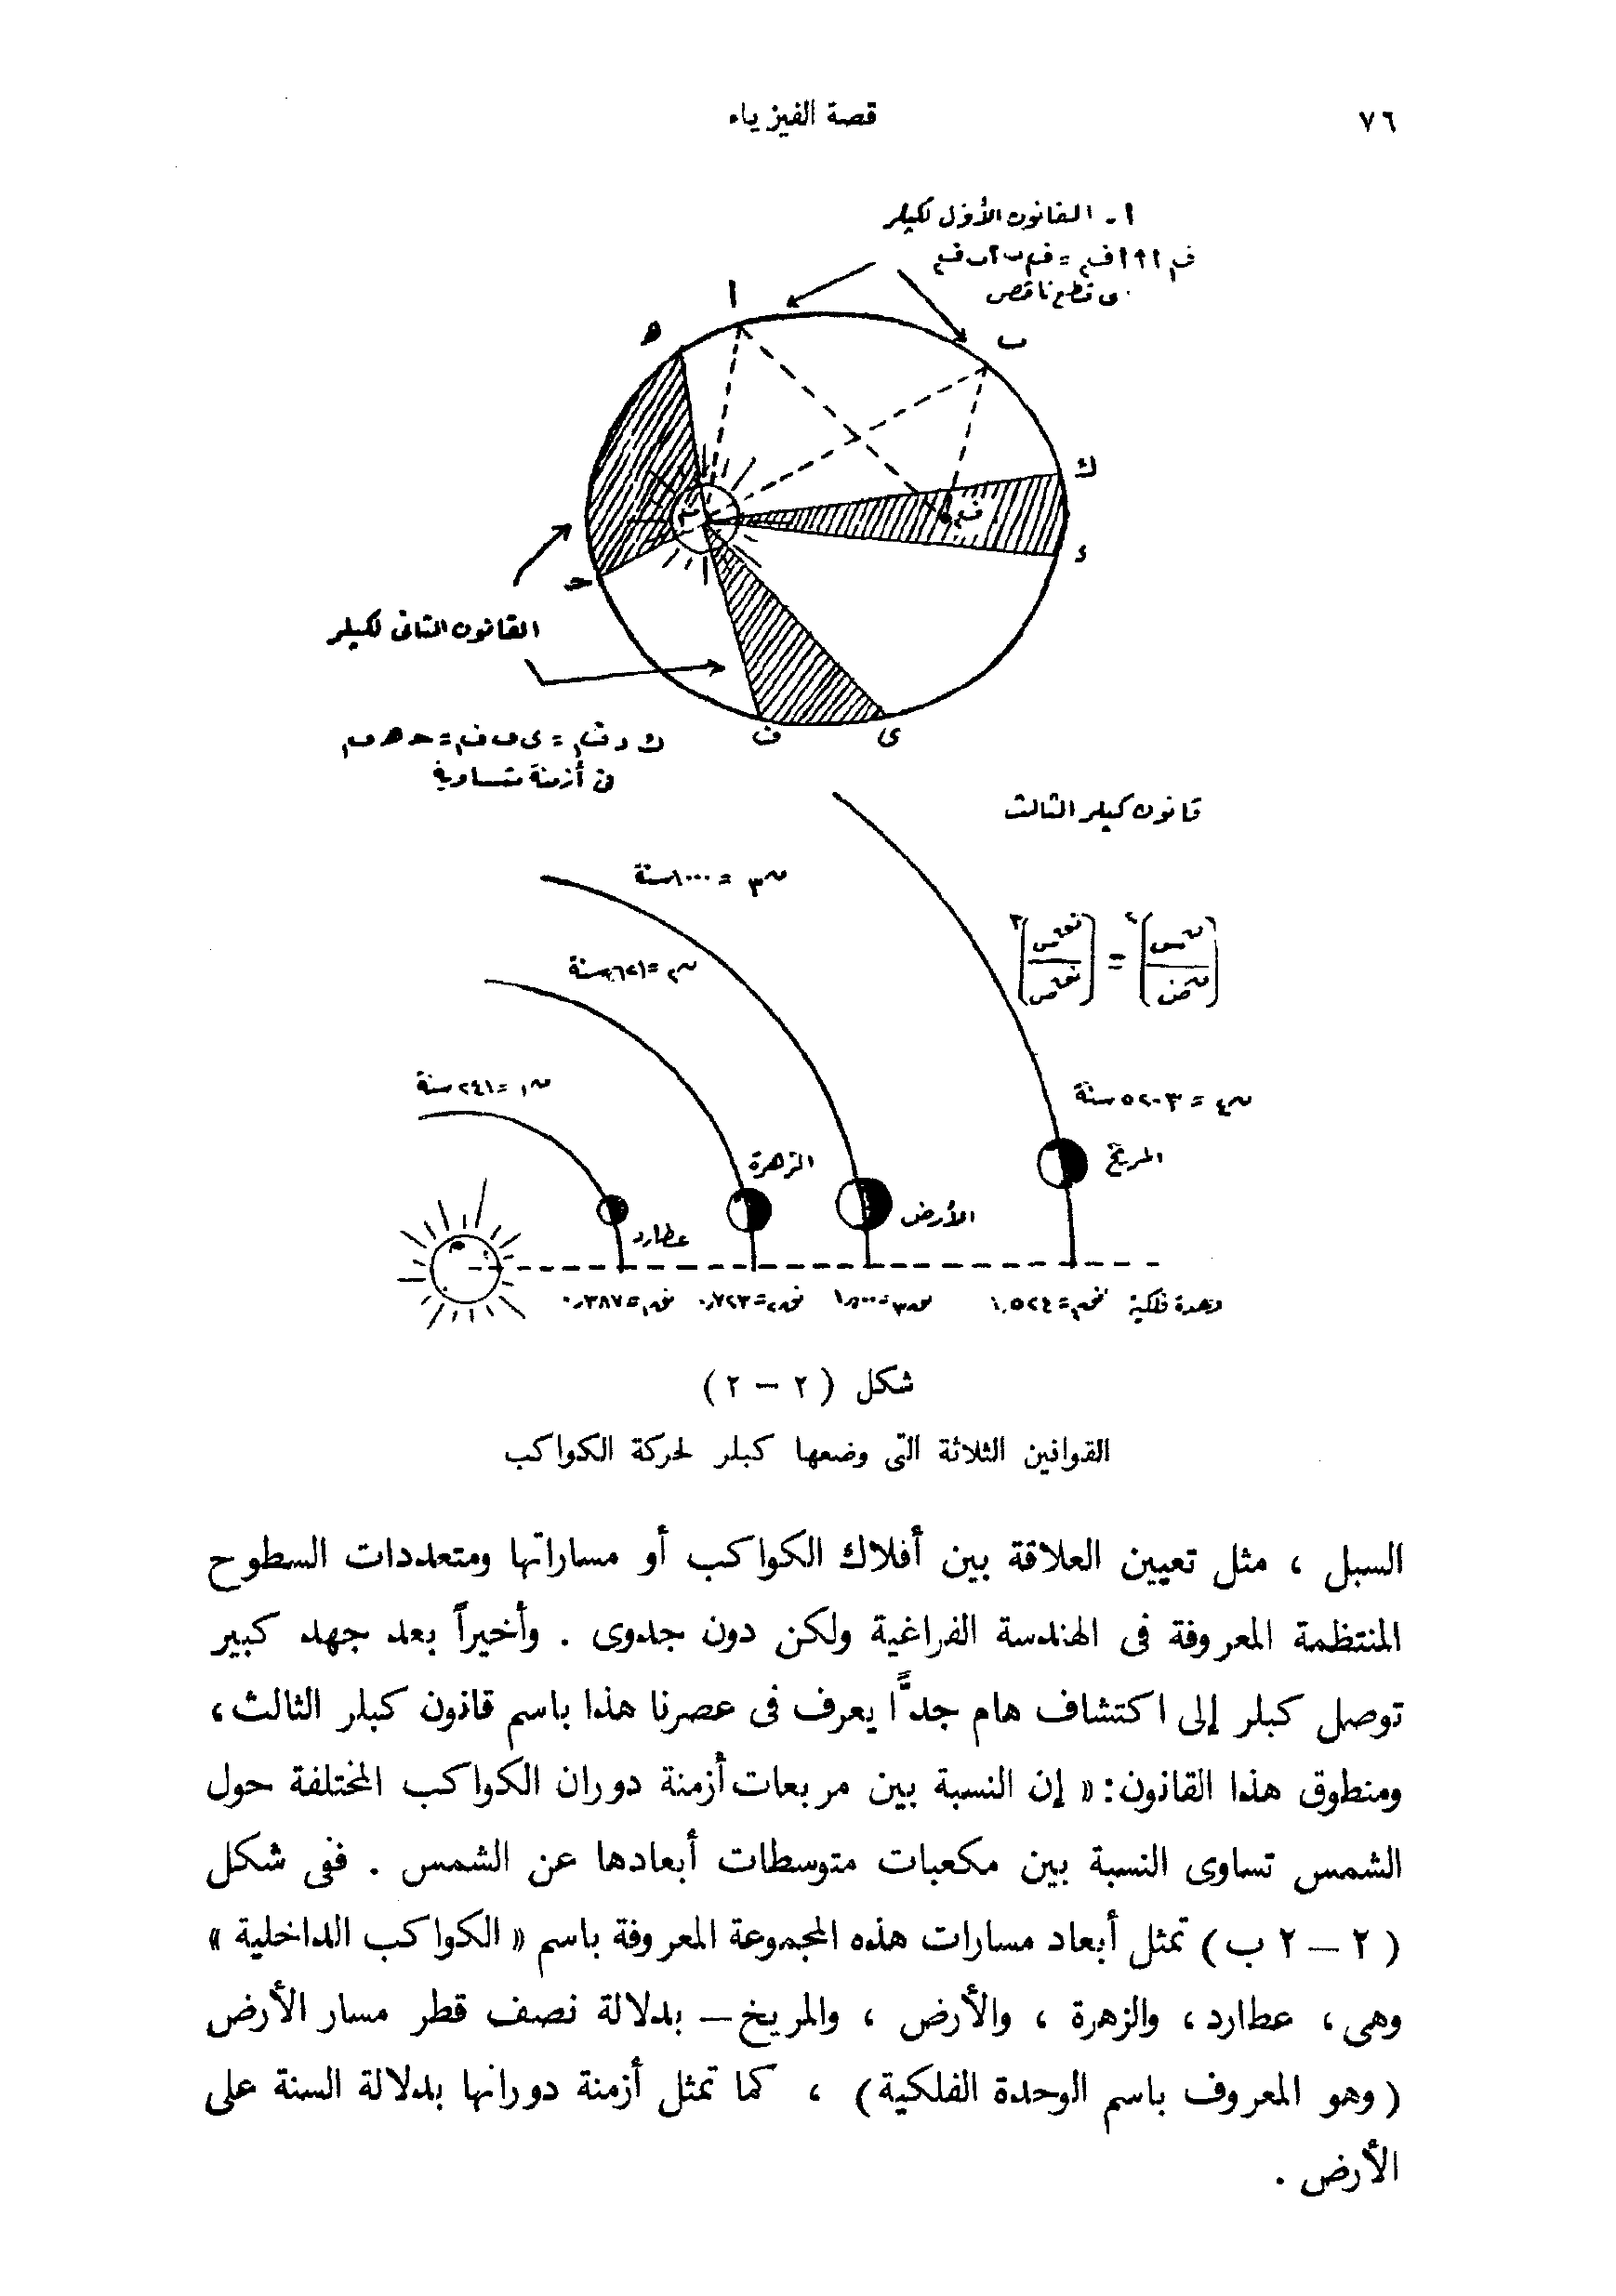 ٧٦
قصة الفيزياء
ا - القانون الأول لكبلر
قطع ناقص
ا
ب
ه
ك
د
ح
القانون الثانى لكبلر
ف
ى
فى أزمنة متساوية
قانون كبلر الثالث
ن٣ = ١٠٠٠ سنة
ن١ = ٢٤١ سنة
المريخ
الزهرة
الأرض
عطارد
٠,٣٨٧
٠,٧٢٣
١,٥٢٤
وحدة فلكية
شكل ( ٢ – ٢ )
القوانين الثلاثة التى وضعها كبلر لحركة الكواكب
السبل ، مثل تعيين العلاقة بين أفلاك الكواكب أو مساراتها ومتعددات السطوح
المنتظمة المعروفة فى الهندسة الفراغية ولكن دون جدوى . وأخيراً بعد جهد كبير
توصل كبلر إلى اكتشاف هام جدًّا يعرف فى عصرنا هذا باسم قانون كبلر الثالث ،
ومنطوق هذا القانون : « إن النسبة بين مربعات أزمنة دوران الكواكب المختلفة حول
الشمس تساوى النسبة بين مكعبات متوسطات أبعادها عن الشمس . ففى شكل
( ٢ – ٢ ب ) تمثل أبعاد مسارات هذه المجموعة المعروفة باسم « الكواكب الداخلية »
وهى ، عطارد ، والزهرة ، والأرض ، والمريخ – بدلالة نصف قطر مسار الأرض
( وهو المعروف باسم الوحدة الفلكية ) ، كما تمثل أزمنة دورانها بدلالة السنة على
الأرض .